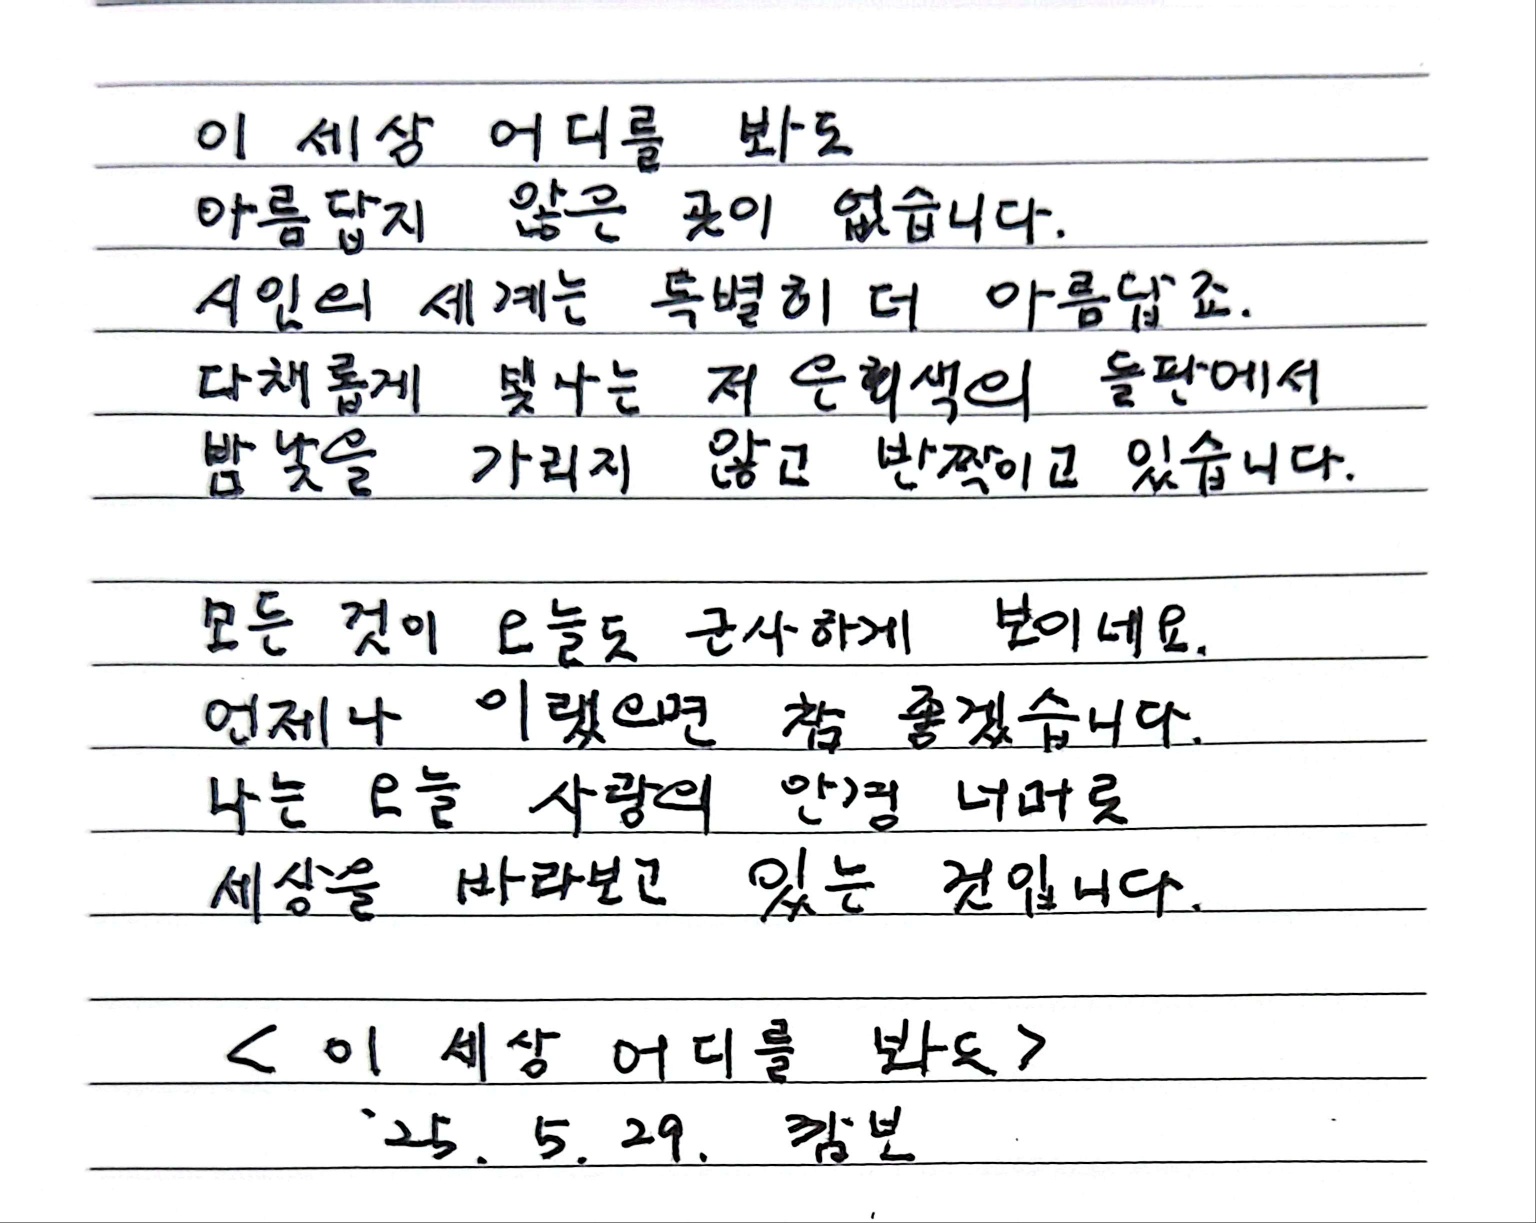 이 세상 어디를 봐도
아름답지 않은 곳이 없습니다.
시인의 세계는 특별히 더 아름답죠.
다채롭게 빛나는 저 은회색의 들판에서
밤낮을 가리지 않고 반짝이고 있습니다.
모든 것이 오늘도 근사하게 보이네요.
언제나 이랬으면 참 좋겠습니다.
나는 오늘 사랑의 안경 너머로
세상을 바라보고 있는 것입니다.
< 이 세상 어디를 봐도 >
'25. 5. 29. 캄보